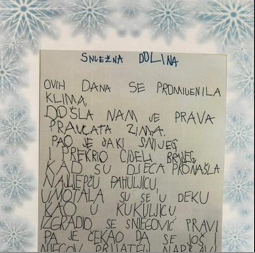 SNJEŽNA DOLINA
OVIH DANA SE PROMIJENILA
KLIMA,
DOŠLA NAM JE PRAVA
PRAVCATA ZIMA.
PAO JE JAKI SNIJEG,
I PREKRIO CIJELI BRIJEG,
KAD SU DJECA PRONAŠLA
NAJLJEPŠU PAHULJICU,
UMOTALA SU SE U DEKU
KAO U KUKULJICU.
IZGRADIO SE SNJEGOVIĆ PRAVI
PA JE ČEKAO DA SE JOŠ I
NJEGOV PRIJATELJ NAPRAVI